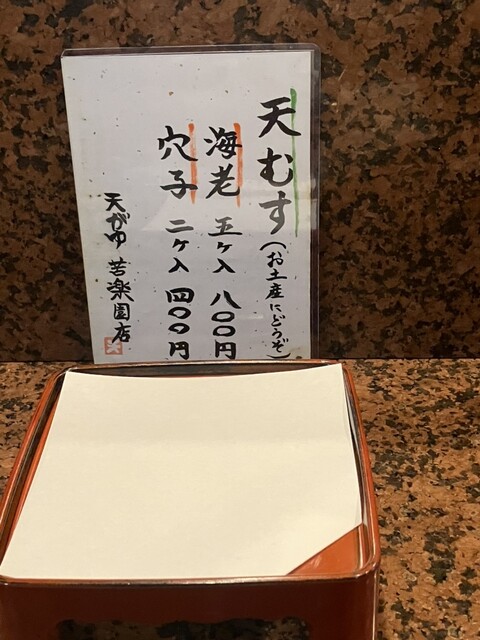 天むす(お土産にどうぞ)
海老 五ヶ入 八〇〇円
穴子 二ヶ入 四〇〇円
天がゆ 苦楽園店